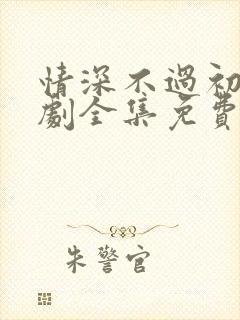 情深不過初
劇全集免費
朱警官